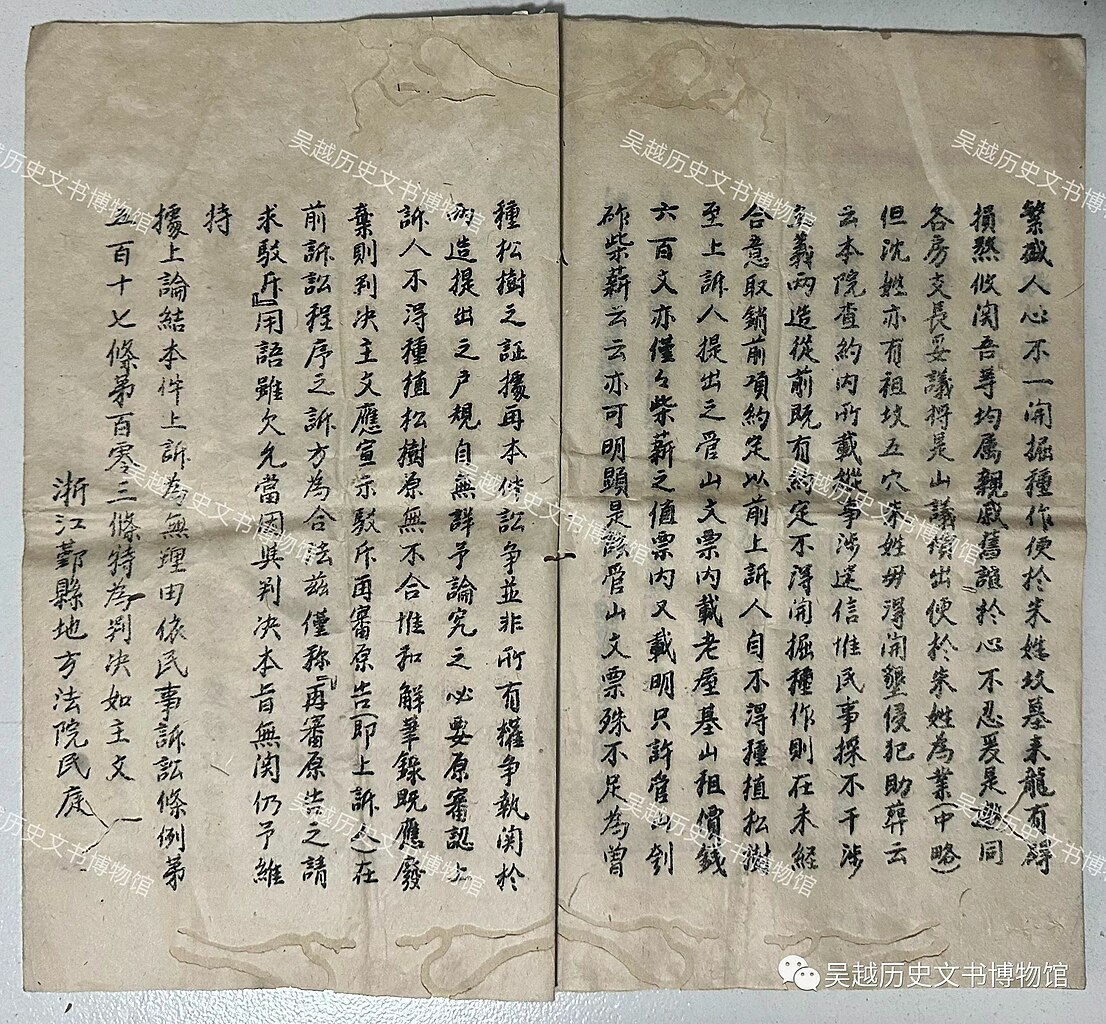 繁盛人心不一開掘種作便於朱姓坟墓来龍有碍
損然攸関吾等均属親戚舊誼於心不忍爰是邀同
各房支長妥議将是山議攢出便於朱姓為業(中略)
但沈姓亦有祖坟五穴朱姓毋得開墾侵犯助葬云
云本院查約内所載縱事涉迷信惟民事採不干涉
主義两造從前既有約定不得開掘種作則在未經
合意取銷前項約定以前上訴人自不得種植松樹
至上訴人提出之管山文票内載老屋基山租價錢
六百文亦僅々柴薪之値票内又載明只許管山刳
砟柴薪云云亦可明顯是該管山文票殊不足為曾
種松樹之証據再本件訟争並非所有權争執関於
两造提出之戸規自無詳予論究之必要原審認上
訴人不得種植松樹原無不合惟和解筆錄既應廢
棄則判决主文應宣示駁斥再審原告(即上訴人)在
前訴訟程序之訴方為合法兹僅称『再審原告之請
求駁斥』用語雖欠允當因與判决本旨無関仍予維
持
據上論結本件上訴為無理由依民事訴訟條例第
五百十七條第百零三條特為判决如主文
浙江鄞縣地方法院民庭
吴越历史文书博物馆